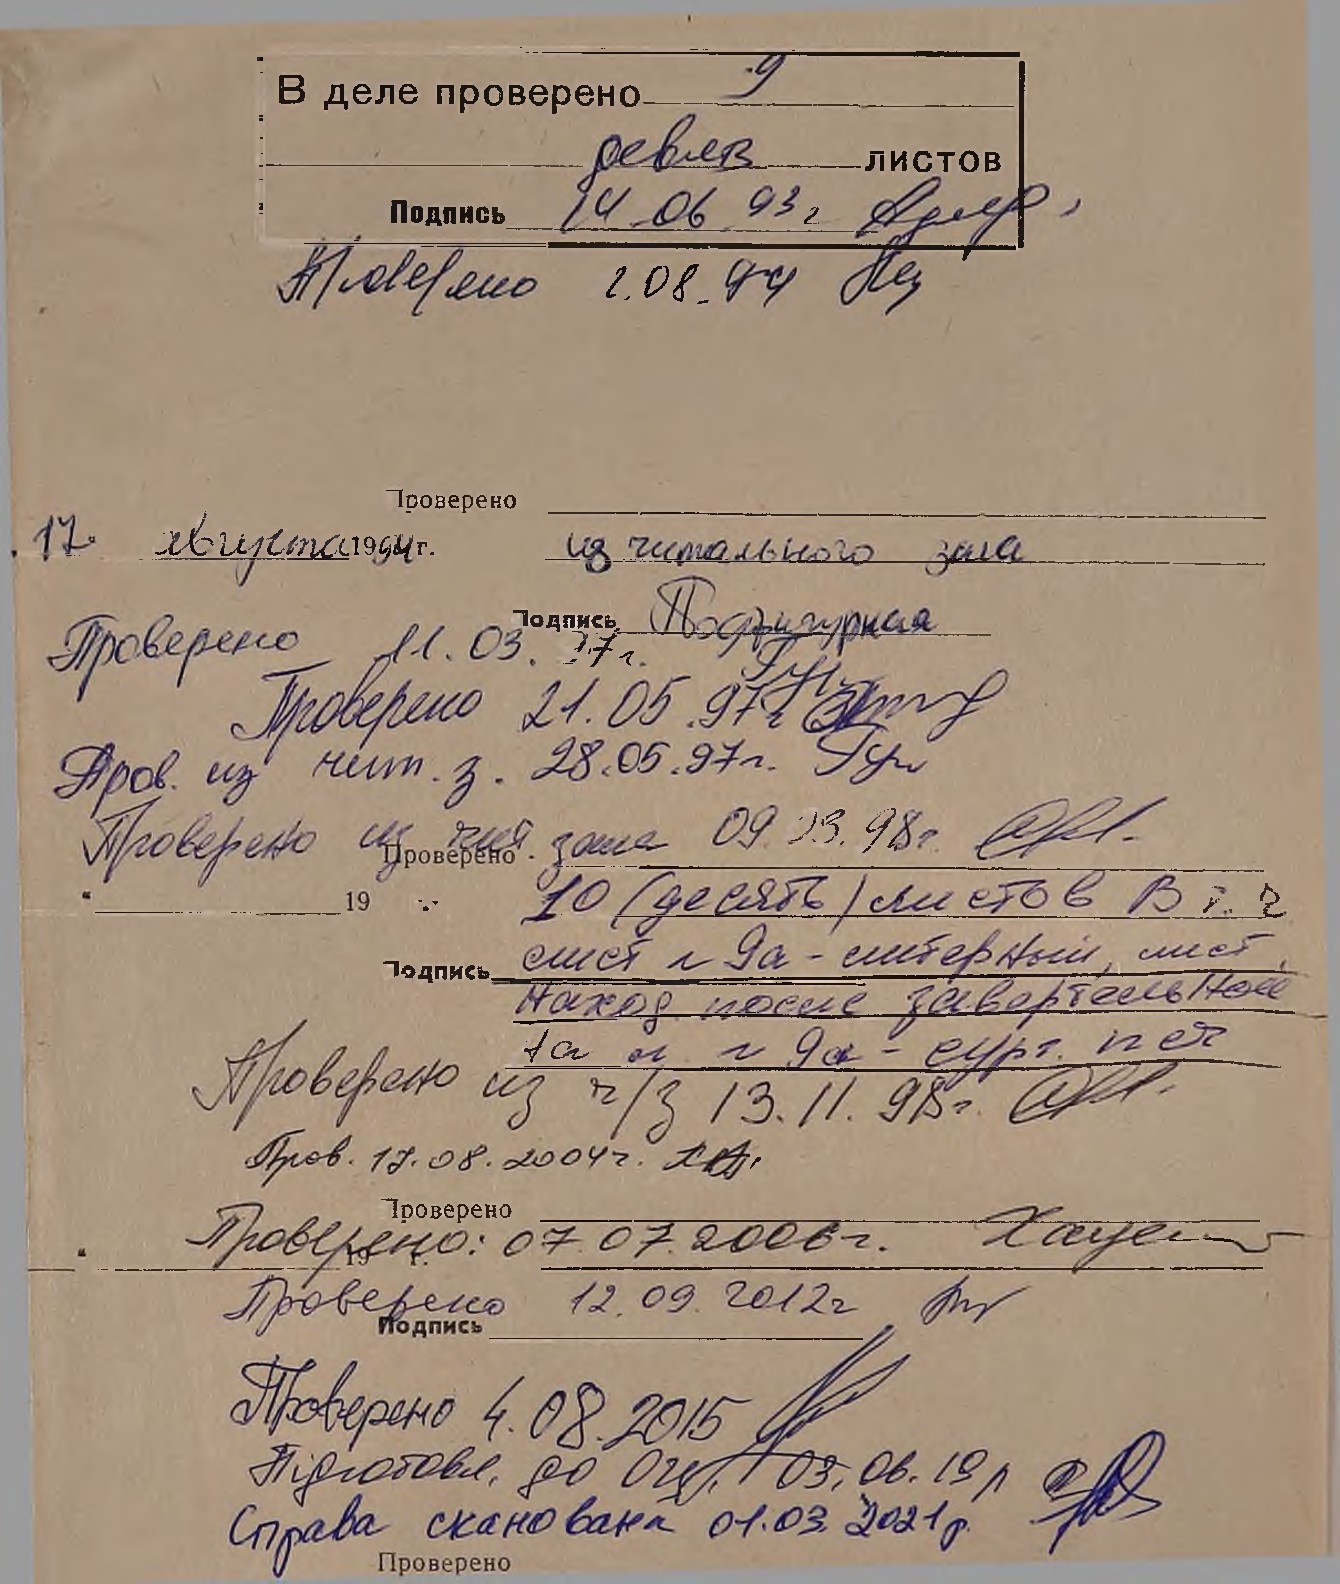 В деле проверено 9
девять листов
Подпись 14 06 93 г
Проверено 2.08.94
Проверено
17. августа 1994 г. из читального зала
Подпись
Проверено 11.03.97 г.
Проверено 21.05.97 г
Пров. из чит. з. 28.05.97 г.
Проверено из чит зала 09.03.98 г.
Проверено
19 10 (десять) листов В т. ч
лист № 9а - литерный, лист
Подпись
наход. после заверительной
л № 9а - сург. печ
Проверено из ч/з 13.11.98 г.
Пров. 17.08.2004 г.
Проверено
Проверено: 07.07.2006 г.
19 г.
Проверено 12.09.2012 г
Подпись
Проверено 4.08.2015
Підготовл. до оц. 03.06.19 р
Справа сканована 01.03.2021 р.
Проверено